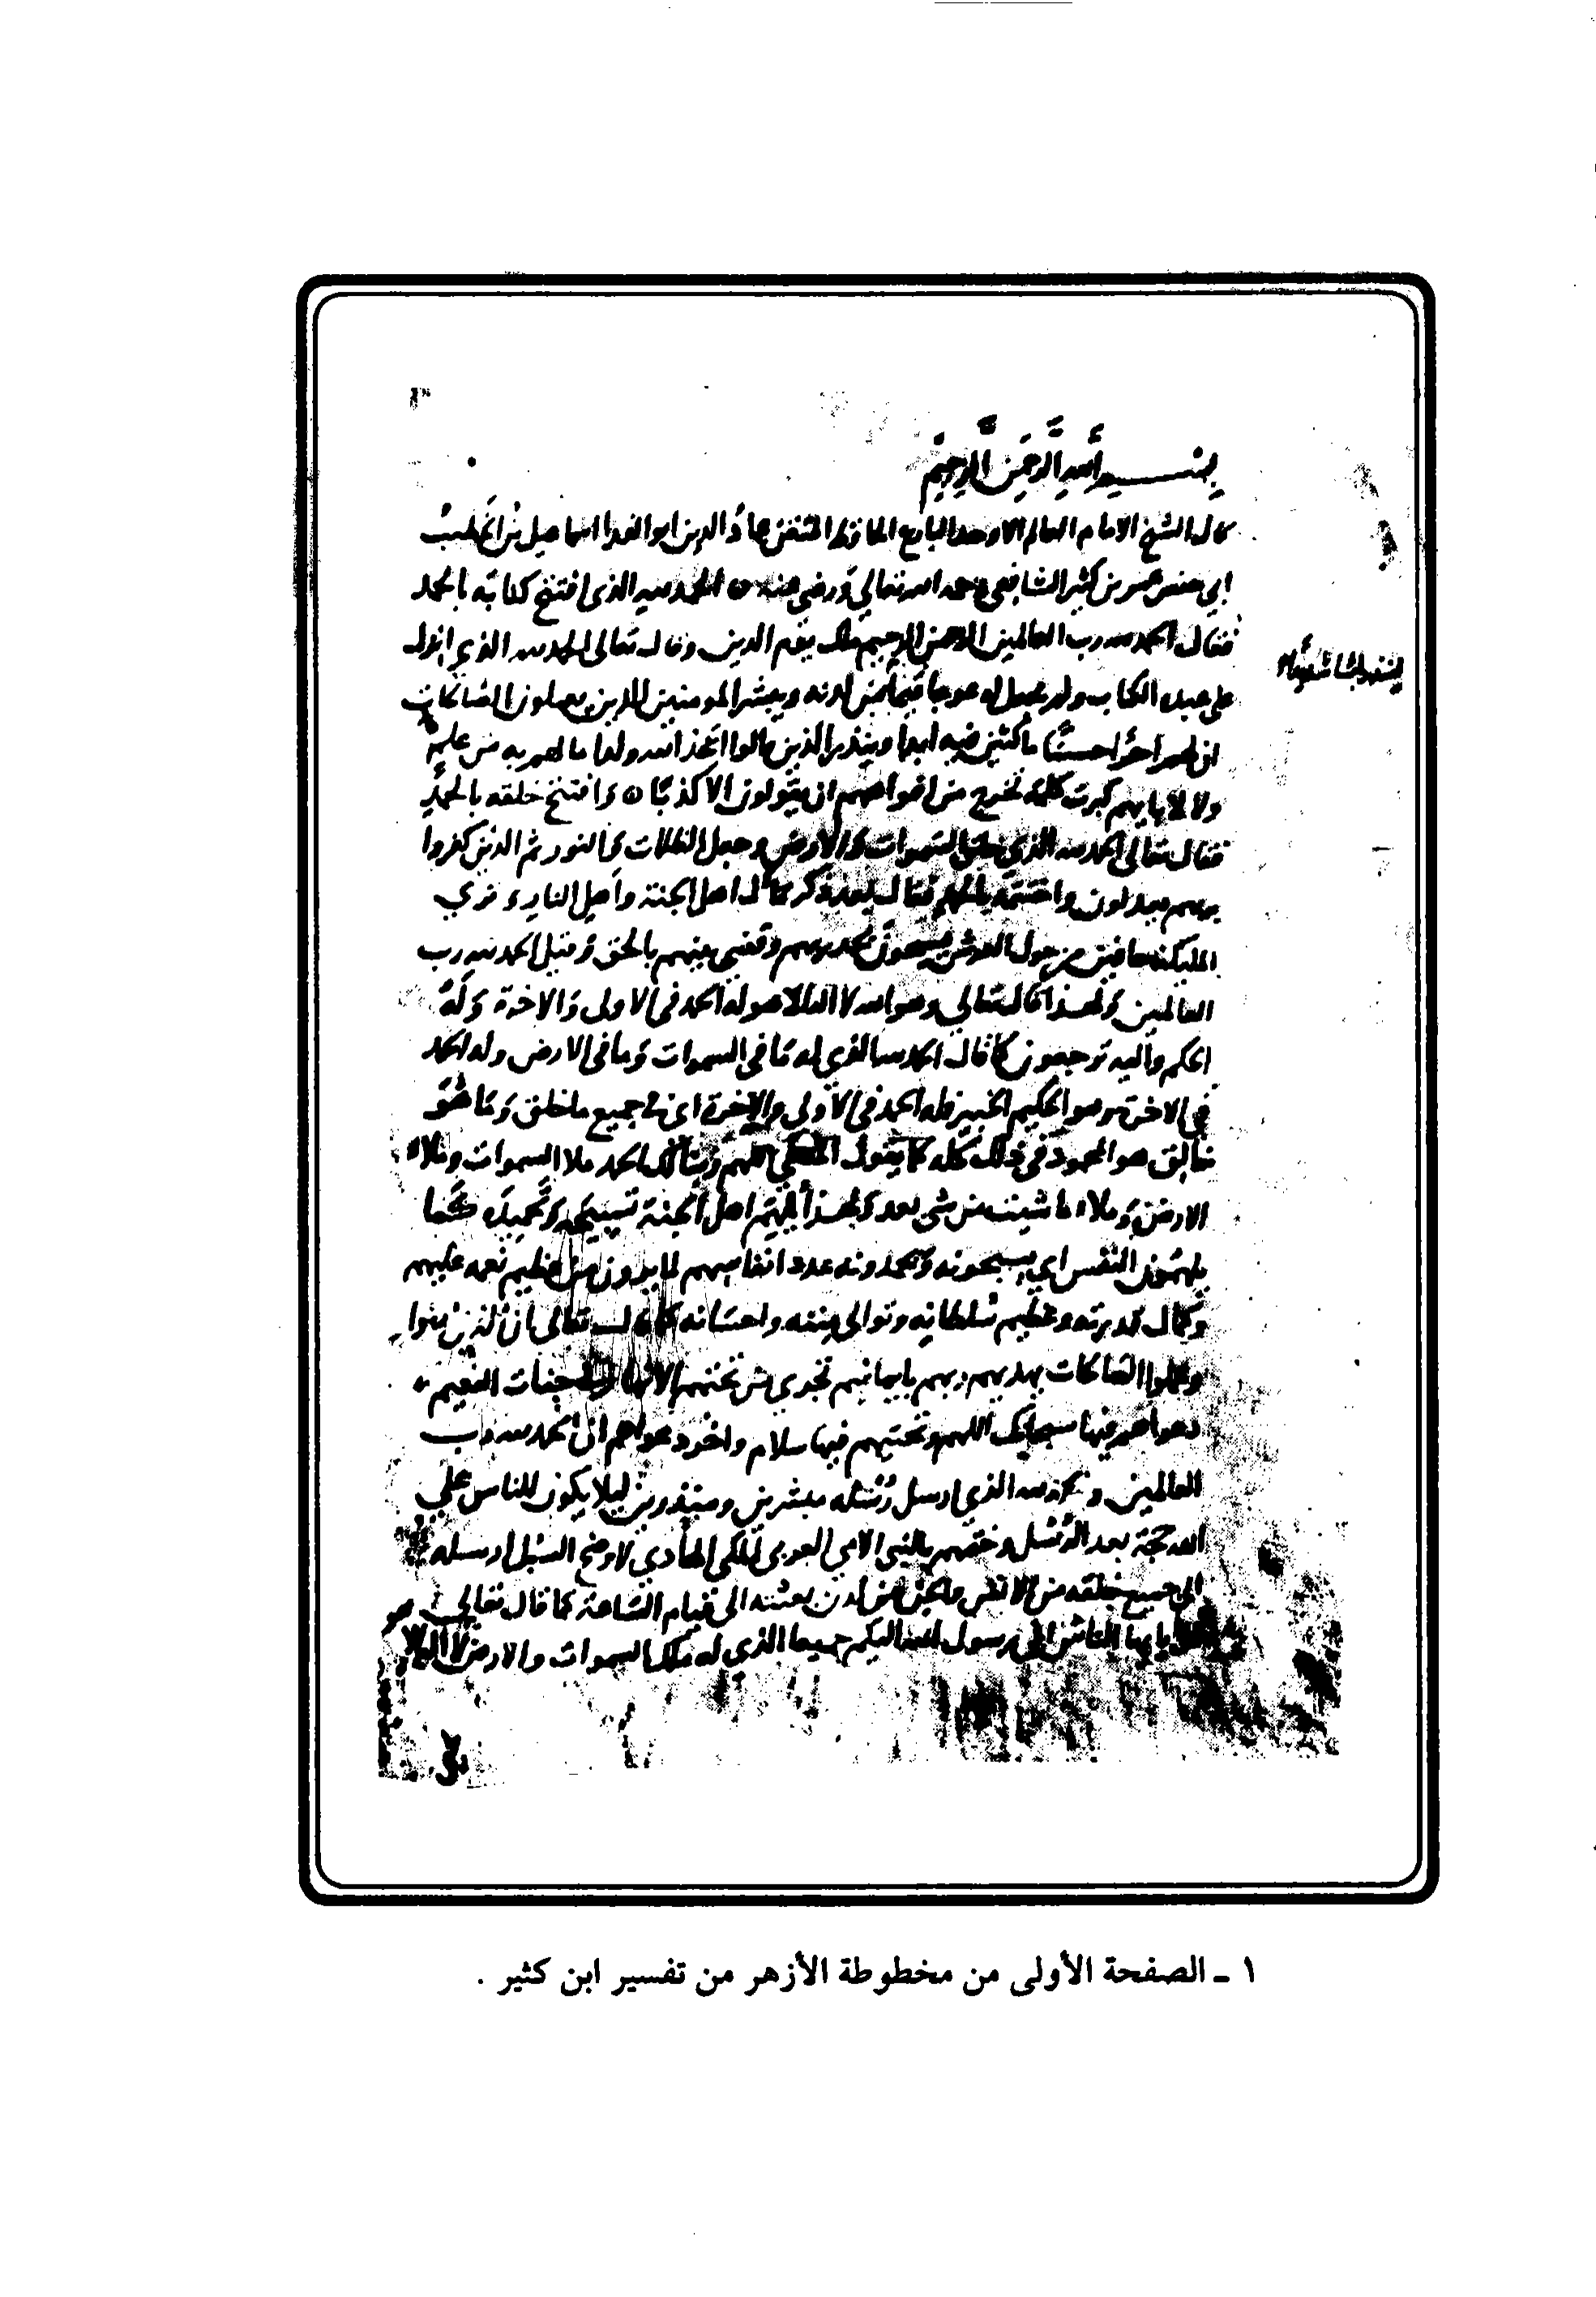 بســـــم الله الرحمن الرحيم
قال الشيخ الامام العالم الاوحد البارع الحافظ المتقن عماد الدين ابو الفدا اسماعيل بن الخطيب
ابي حفص عمر بن كثير الشافعي رحمه الله تعالي ورضي عنه الحمد لله الذي افتتح كتابه بالحمد
فقال الحمد لله رب العالمين الرحمن الرحيم ملك يوم الدين وقال تعالى الحمد لله الذي انزل
على عبده الكتاب ولم يجعل له عوجا قيما لدنه ويبشر المومنين الذين يعملون الصالحات
ان لهم اجرا حسنا ماكثين فيه ابدا وينذر الذين قالوا اتخذ الله ولدا ما لهم به من علم
ولا لابايهم كبرت كلمة تخرج من افواههم ان يقولون الا كذبا وافتتح خلقه بالحمد
فقال تعالى الحمد لله الذي خلق السموات والارض وجعل الظلمات والنور ثم الذين كفروا
بربهم يعدلون واختتمه بالحمد فقال بعد ذكر مآل اهل الجنة واهل النار وتري
المليكة حافين من حول العرش يسبحون بحمد ربهم وقضي بينهم بالحق وقيل الحمد لله رب
العالمين ولهذا قال تعالي وهو الله لا اله الا هو له الحمد في الاولى والاخرة وله
الحكم واليه ترجعون كما قال الحمد لله الذي له ما في السموات وما في الارض وله الحمد
في الاخرة وهو الحكيم الخبير فله الحمد في الاولي والاخرة اي في جميع ما خلق وما هو
خالق هو المحمود في ذلك كله كما يقول المصلي اللهم ربنا لك الحمد ملا السموات وملاء
الارض وملاء ما شيت من شي بعد ولهذا يلهم اهل الجنة تسبيحه وتحميده كما
يلهمون النفس اي يسبحونه ويحمدونه عدد انفاسهم لما يرون من عظيم نعمه عليهم
وكمال قدرته وعظيم سلطانه وتوالي مننه واحسانه كما قال تعالى ان الذين امنوا
وعملوا الصالحات يهديهم ربهم بايمانهم تجري من تحتهم الانهار في جنات النعيم
دعواهم فيها سبحانك اللهم وتحيتهم فيها سلام واخر دعواهم ان الحمد لله رب
العالمين والحمد لله الذي ارسل رسله مبشرين ومنذرين ليلا يكون للناس علي
الله حجة بعد الرسل وختمهم بالنبي الامي العربي المكي الهادي لاوضح السبل ارسله
الى جميع خلقه من الانس والجن من لدن بعثته الى قيام الساعة كما قال تعالي
قل يا ايها الناس اني رسول الله اليكم جميعا الذي له ملك السموات والارض لا اله الا هو
١ ـ الصفحة الأولى من مخطوطة الأزهر من تفسير ابن كثير .